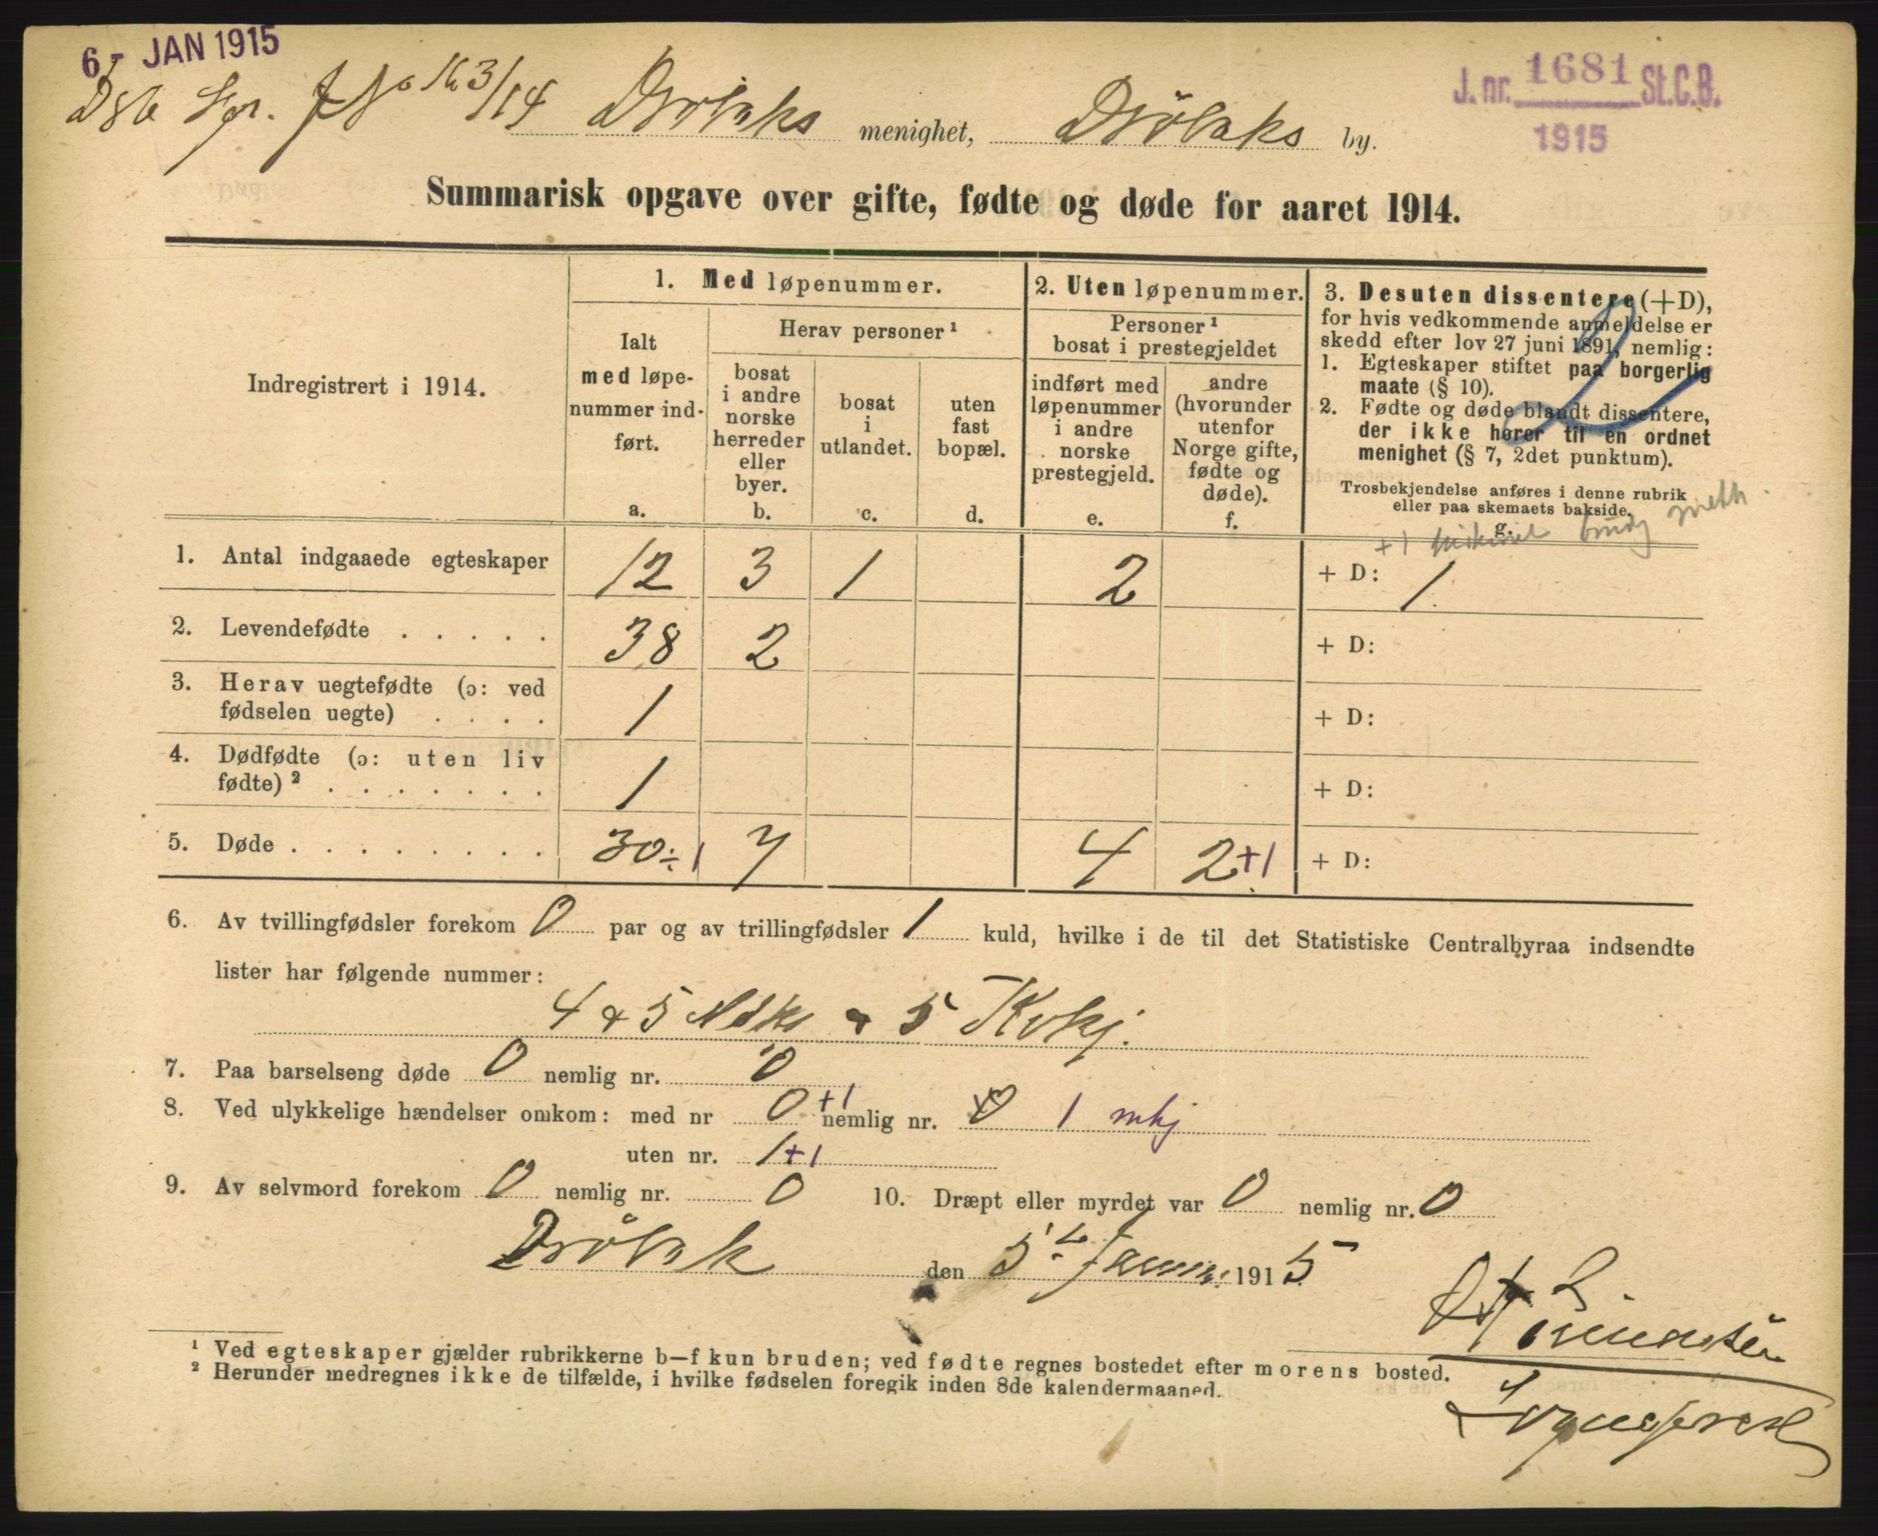 6 - JAN 1915
J. nr. 1681 St. C. B.
1915
Dbk Spr. J No 163/14 Drøbaks menighet, Drøbaks by.
Summarisk opgave over gifte, fødte og døde for aaret 1914.
Indregistrert i 1914.
1. Med løpenummer.
Ialt
med løpe-
nummer ind-
ført.
a.
Herav personer ¹
bosat
i andre
norske
herreder
eller
byer.
b.
bosat
i
utlandet.
c.
uten
fast
bopæl.
d.
2. Uten løpenummer.
Personer ¹
bosat i prestegjeldet
indført med
løpenummer
i andre
norske
prestegjeld.
e.
andre
(hvorunder
utenfor
Norge gifte,
fødte og
døde).
f.
3. Desuten dissentere (+D),
for hvis vedkommende anmeldelse er
skedd efter lov 27 juni 1891, nemlig:
1. Egteskaper stiftet paa borgerlig
maate (§ 10).
2. Fødte og døde blandt dissentere,
der ikke hører til en ordnet
menighet (§ 7, 2det punktum).
Trosbekjendelse anføres i denne rubrik
eller paa skemaets bakside.
g.
2
+1 brudg meth.
1. Antal indgaaede egteskaper 12 3 1 2 + D: 1.
2. Levendefødte . . . . . 38 2 + D:
3. Herav uegtefødte (ɔ: ved
fødselen uegte) . . . . 1 + D:
4. Dødfødte (ɔ: uten liv
fødte) ² . . . . . . . 1 + D:
5. Døde . . . . . . . . 30 ÷1 7 4 2+1 + D:
6. Av tvillingfødsler forekom 0 par og av trillingfødsler 1 kuld, hvilke i de til det Statistiske Centralbyraa indsendte
lister har følgende nummer:
4 & 5 Mdkj & 5 Kvkj.
7. Paa barselseng døde 0 nemlig nr. 0
8. Ved ulykkelige hændelser omkom: med nr 0 +1 nemlig nr. 0 1 mkj
uten nr. 1+1
9. Av selvmord forekom 0 nemlig nr. 0 10. Dræpt eller myrdet var 0 nemlig nr. 0
Drøbak den 5te Januar 1915
Sogneprest
¹ Ved egteskaper gjælder rubrikkerne b—f kun bruden; ved fødte regnes bostedet efter morens bosted.
² Herunder medregnes ikke de tilfælde, i hvilke fødselen foregik inden 8de kalendermaaned.